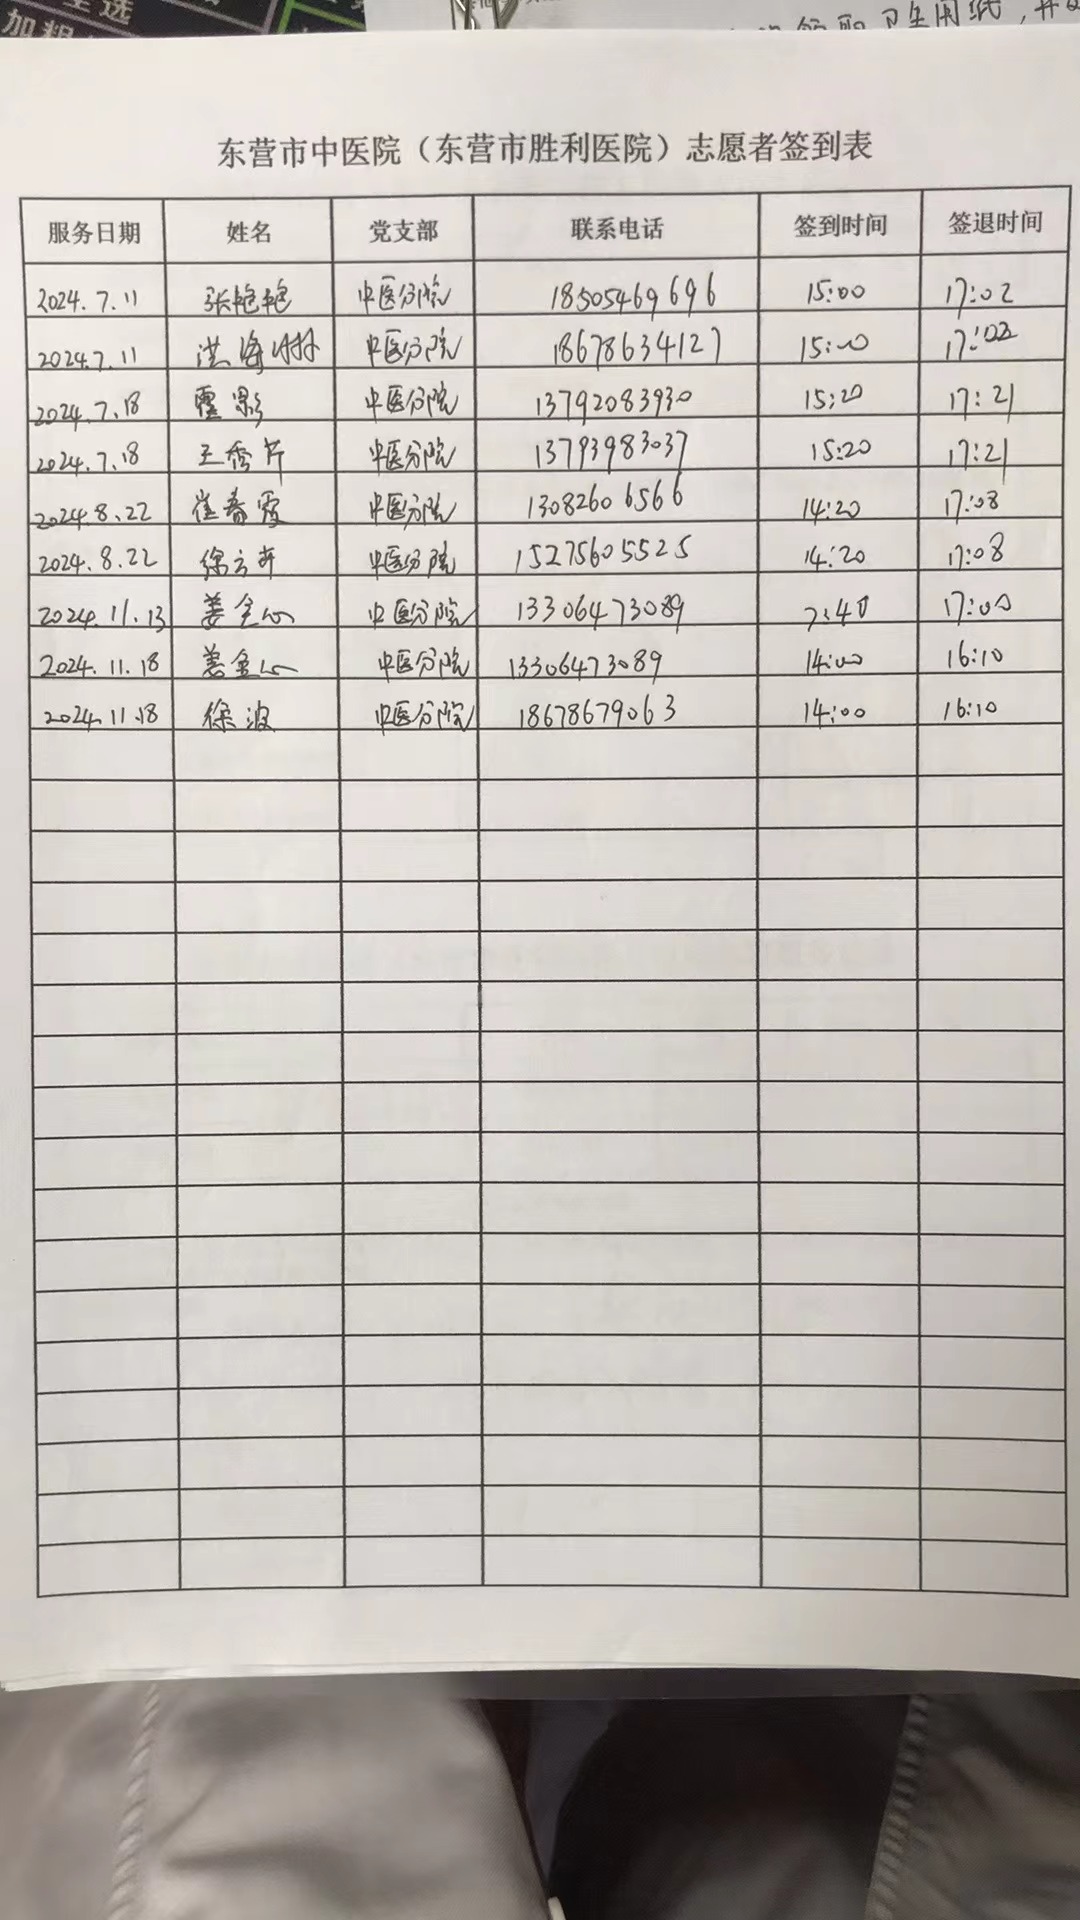 全选
加粗
领取卫生用纸,并
东营市中医院（东营市胜利医院）志愿者签到表
服务日期 姓名 党支部 联系电话 签到时间 签退时间
2024.7.11 张艳艳 中医分院 18505469696 15:00 17:02
2024.7.11 洪海彬 中医分院 18678634127 15:00 17:02
2024.7.18 霍影 中医分院 13792083930 15:20 17:21
2024.7.18 王秀芹 中医分院 13793983037 15:20 17:21
2024.8.22 崔春霞 中医分院 13082606566 14:20 17:08
2024.8.22 徐立卉 中医分院 15275605525 14:20 17:08
2024.11.13 姜金心 中医分院 13306473089 7:40 17:00
2024.11.18 姜金心 中医分院 13306473089 14:00 16:10
2024.11.18 徐波 中医分院 18678679063 14:00 16:10